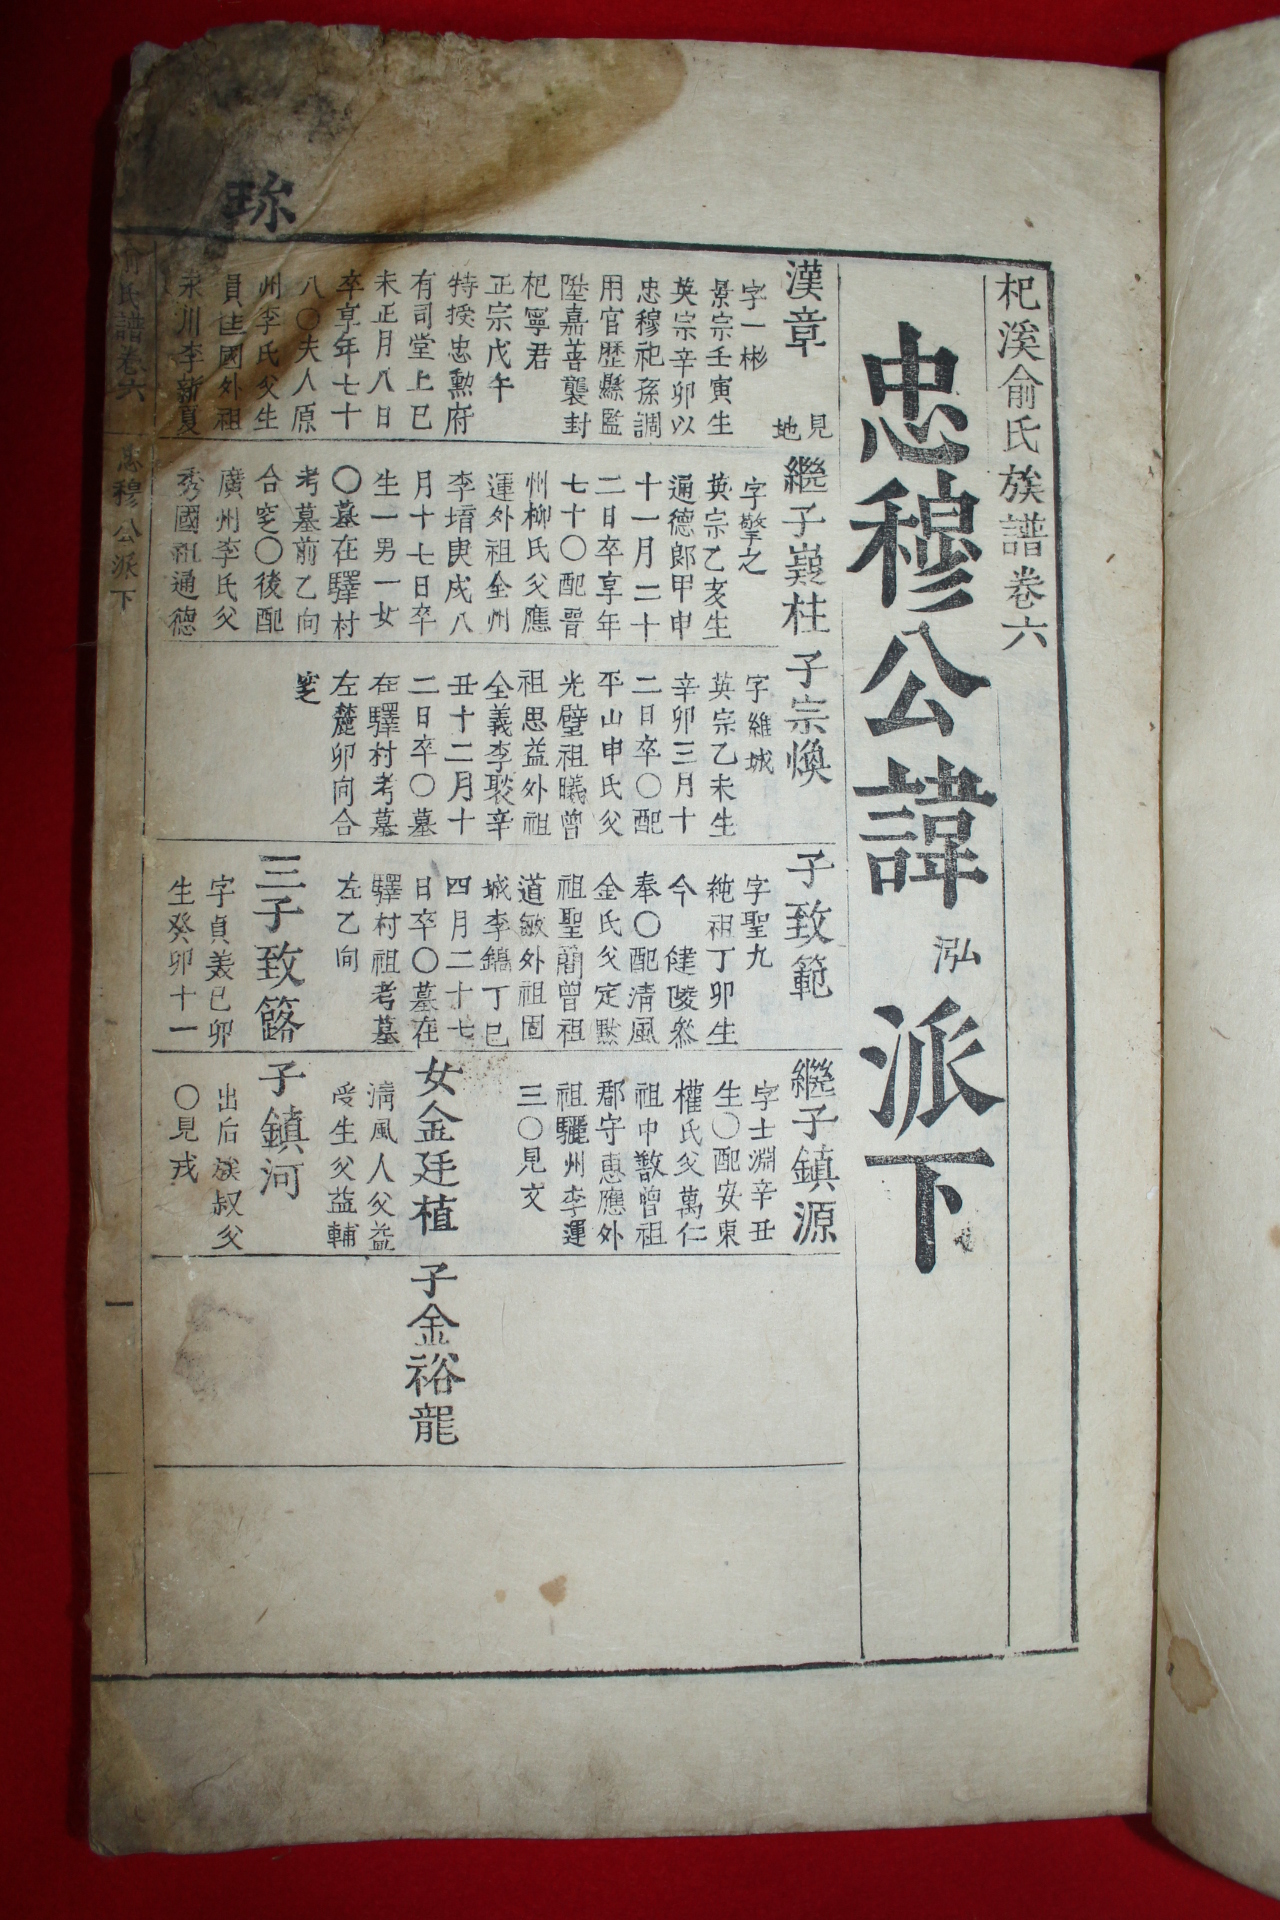 杞溪俞氏族譜卷六
忠穆公諱泓派下
珎
漢章
見地
字一彬
景宗壬寅生
英宗辛卯以
忠穆祀孫調
用官歷縣監
陞嘉善襲封
杞寧君
正宗戊午
特授忠勲府
有司堂上巳
未正月八日
卒享年七十
八〇夫人原
州李氏父生
員𨓏國外祖
永川李新夏
繼子嶷柱
字擎之
英宗乙亥生
通德郎甲申
十一月二十
二日卒享年
七十〇配晉
州柳氏父應
運外祖全州
李堉庚戌八
月十七日卒
生一男一女
〇墓在驛村
考墓前乙向
合窆〇後配
廣州李氏父
秀國祖通德
子宗煥
字維城
英宗乙未生
辛卯三月十
二日卒〇配
平山申氏父
光璧祖曦曾
祖思益外祖
全義李褧辛
丑十二月十
二日卒〇墓
在驛村考墓
左麓卯向合
窆
子致範
字聖九
純祖丁卯生
今 健陵叅
奉〇配清風
金氏父定黙
祖聖簡曾祖
道敏外祖固
城李鎬丁巳
四月二十七
日卒〇墓在
驛村祖考墓
左乙向
三子致簬
字貞義己卯
生癸卯十一
繼子鎮源
字士淵辛丑
生〇配安東
權氏父萬仁
祖中斅曾祖
郡守惠應外
祖驪州李運
三〇見文
女金廷植
清風人父益
受生父益輔
子鎮河
出后族叔父
〇見戎
子金裕龍
俞氏譜卷六
忠穆公派下
一